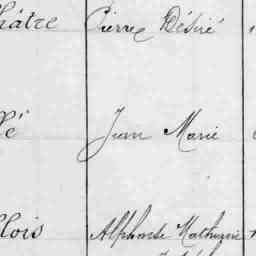 hâtre Pierre Désiré
lé Jean Marie
llois Alphonse Mathurin